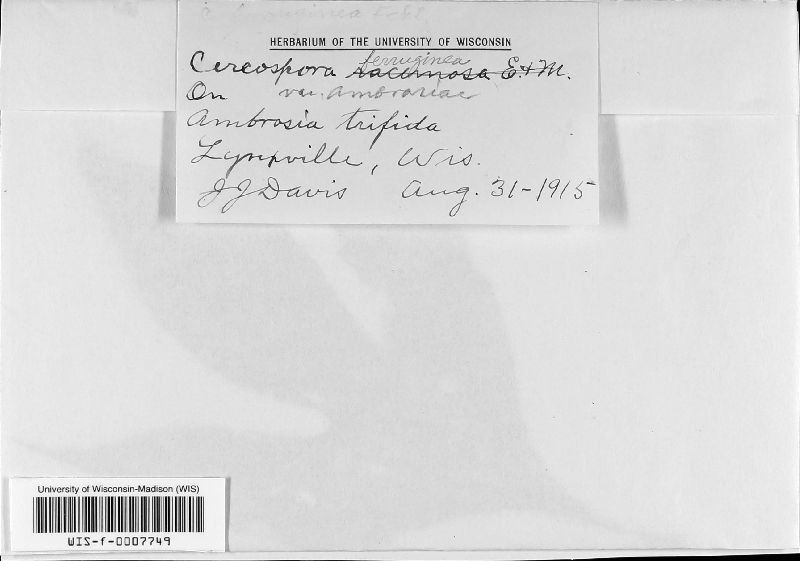 HERBARIUM OF THE UNIVERSITY OF WISCONSIN
ferruginea
Cercospora racemosa E.+M.
On var. Ambrosiae
Ambrosia trifida
Lynxville, Wis.
JJ Davis Aug. 31-1915
University of Wisconsin-Madison (WIS)
WIS-f-0007749